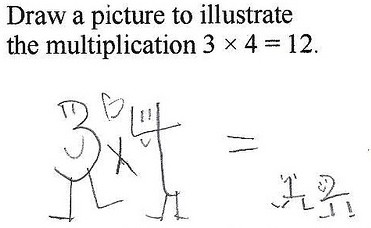 Draw a picture to illustrate
the multiplication 3 × 4 = 12.
3 x 4 = 12